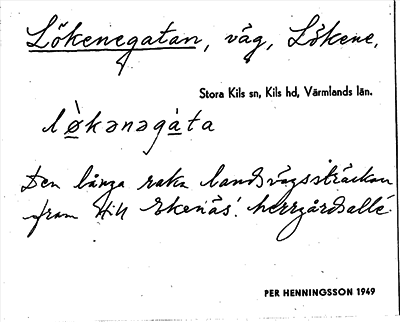 Lökenegatan, väg, Lökene,
Stora Kils sn, Kils hd, Värmlands län.
lø̀kənəgàta
Den långa raka landsvägssträckan
fram till Ekenäs' herrgårdsallé
PER HENNINGSSON 1949